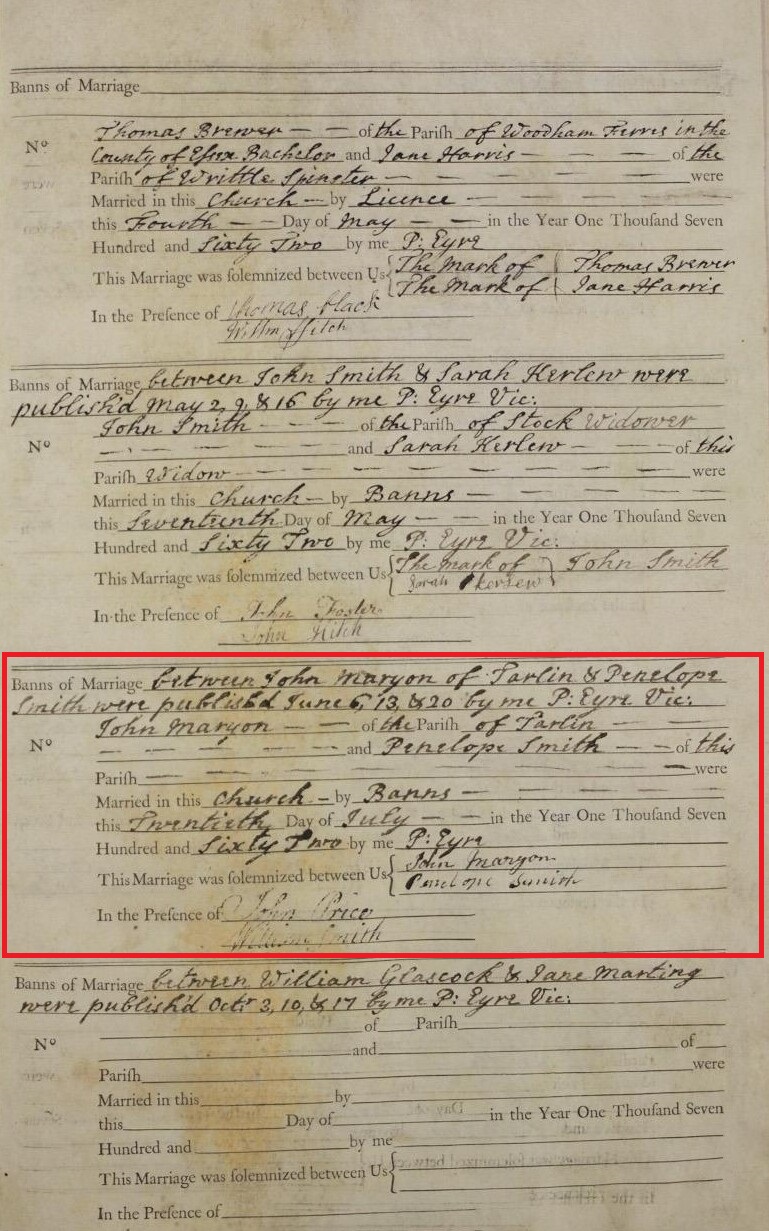 Banns of Marriage
Thomas Brewer — — of the Pariſh of Woodham Ferris in the
Nº County of Eſsex Bachelor and Jane Harris — — — — of the
Pariſh of Writtle Spinster — — — — — — were
Married in this Church — by Licence — — — —
this Fourth — — Day of May — — in the Year One Thouſand Seven
Hundred and Sixty Two by me P: Eyre
This Marriage was ſolemnized between Us { The Mark of Thomas Brewer
The Mark of Jane Harris
In the Preſence of Thomas Black
Willm Fitch
Banns of Marriage between John Smith & Sarah Kerlew were
publish'd May 2, 9, & 16 by me P: Eyre Vic:
John Smith — — — of the Pariſh of Stock Widower
Nº — — — — and Sarah Kerlew — — — of this
Pariſh Widow — — — — — — were
Married in this Church — by Banns — — — — —
this Seventeenth Day of May — — in the Year One Thouſand Seven
Hundred and Sixty Two by me P: Eyre Vic:
This Marriage was ſolemnized between Us { The Mark of John Smith
Sarah Kerlew
In the Preſence of John Foster
John
Banns of Marriage between John Maryon of Tarlin & Penelope
Smith were publish'd June 6, 13, & 20 by me P: Eyre Vic:
John Maryon — — of the Pariſh of Tarlin — —
Nº — — — — — and Penelope Smith — — of this
Pariſh — — — — — — — were
Married in this Church — by Banns — — — —
this Twentieth Day of July — — in the Year One Thouſand Seven
Hundred and Sixty Two by me P: Eyre
This Marriage was ſolemnized between Us { John Maryon
Penelope Smith
In the Preſence of John Price
William Smith
Banns of Marriage between William Glascock & Jane Marting
were publish'd Octr 3, 10, & 17 by me P: Eyre Vic:
of Pariſh
Nº and of
Pariſh were
Married in this by
this Day of in the Year One Thouſand Seven
Hundred and by me
This Marriage was ſolemnized between Us {
In the Preſence of